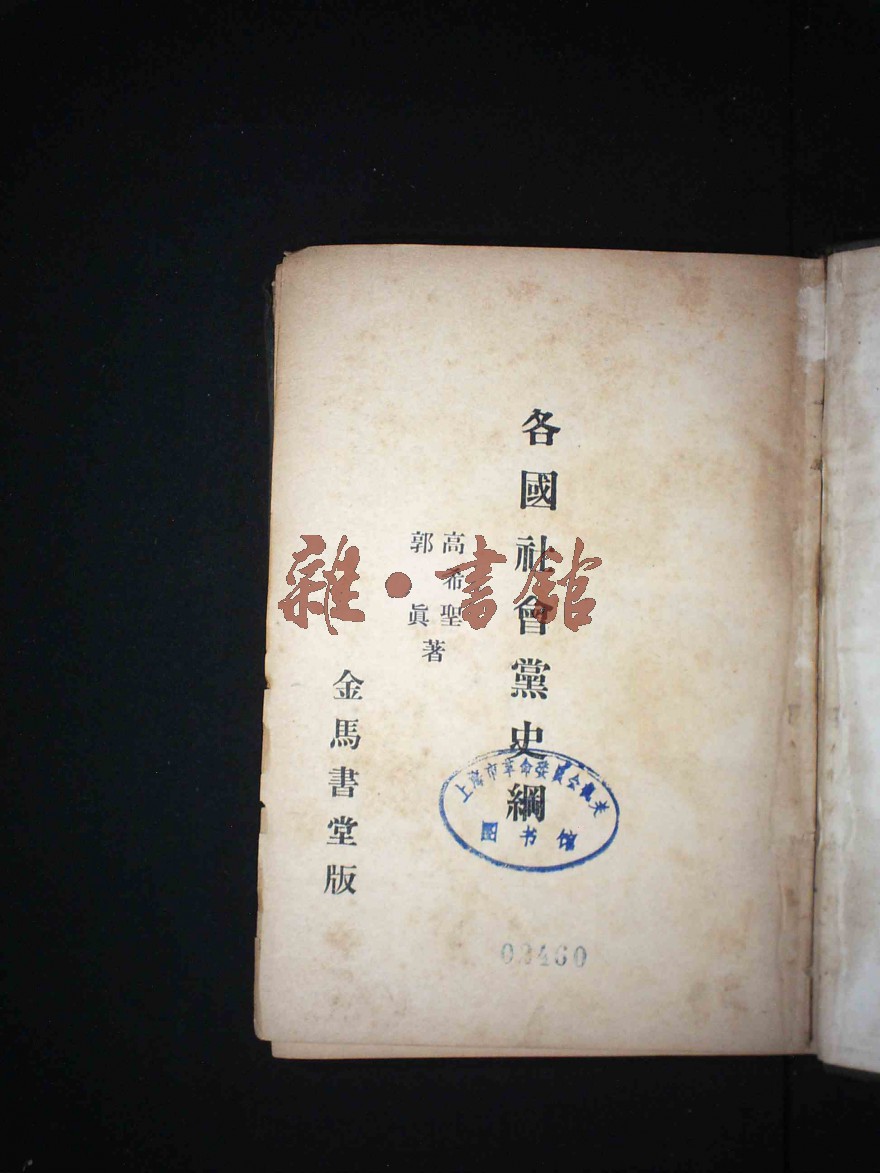 各國社會黨史綱
高希聖
郭眞
著
金馬書堂版
雜·書館
上海市革命委員会机关
图书馆
03460